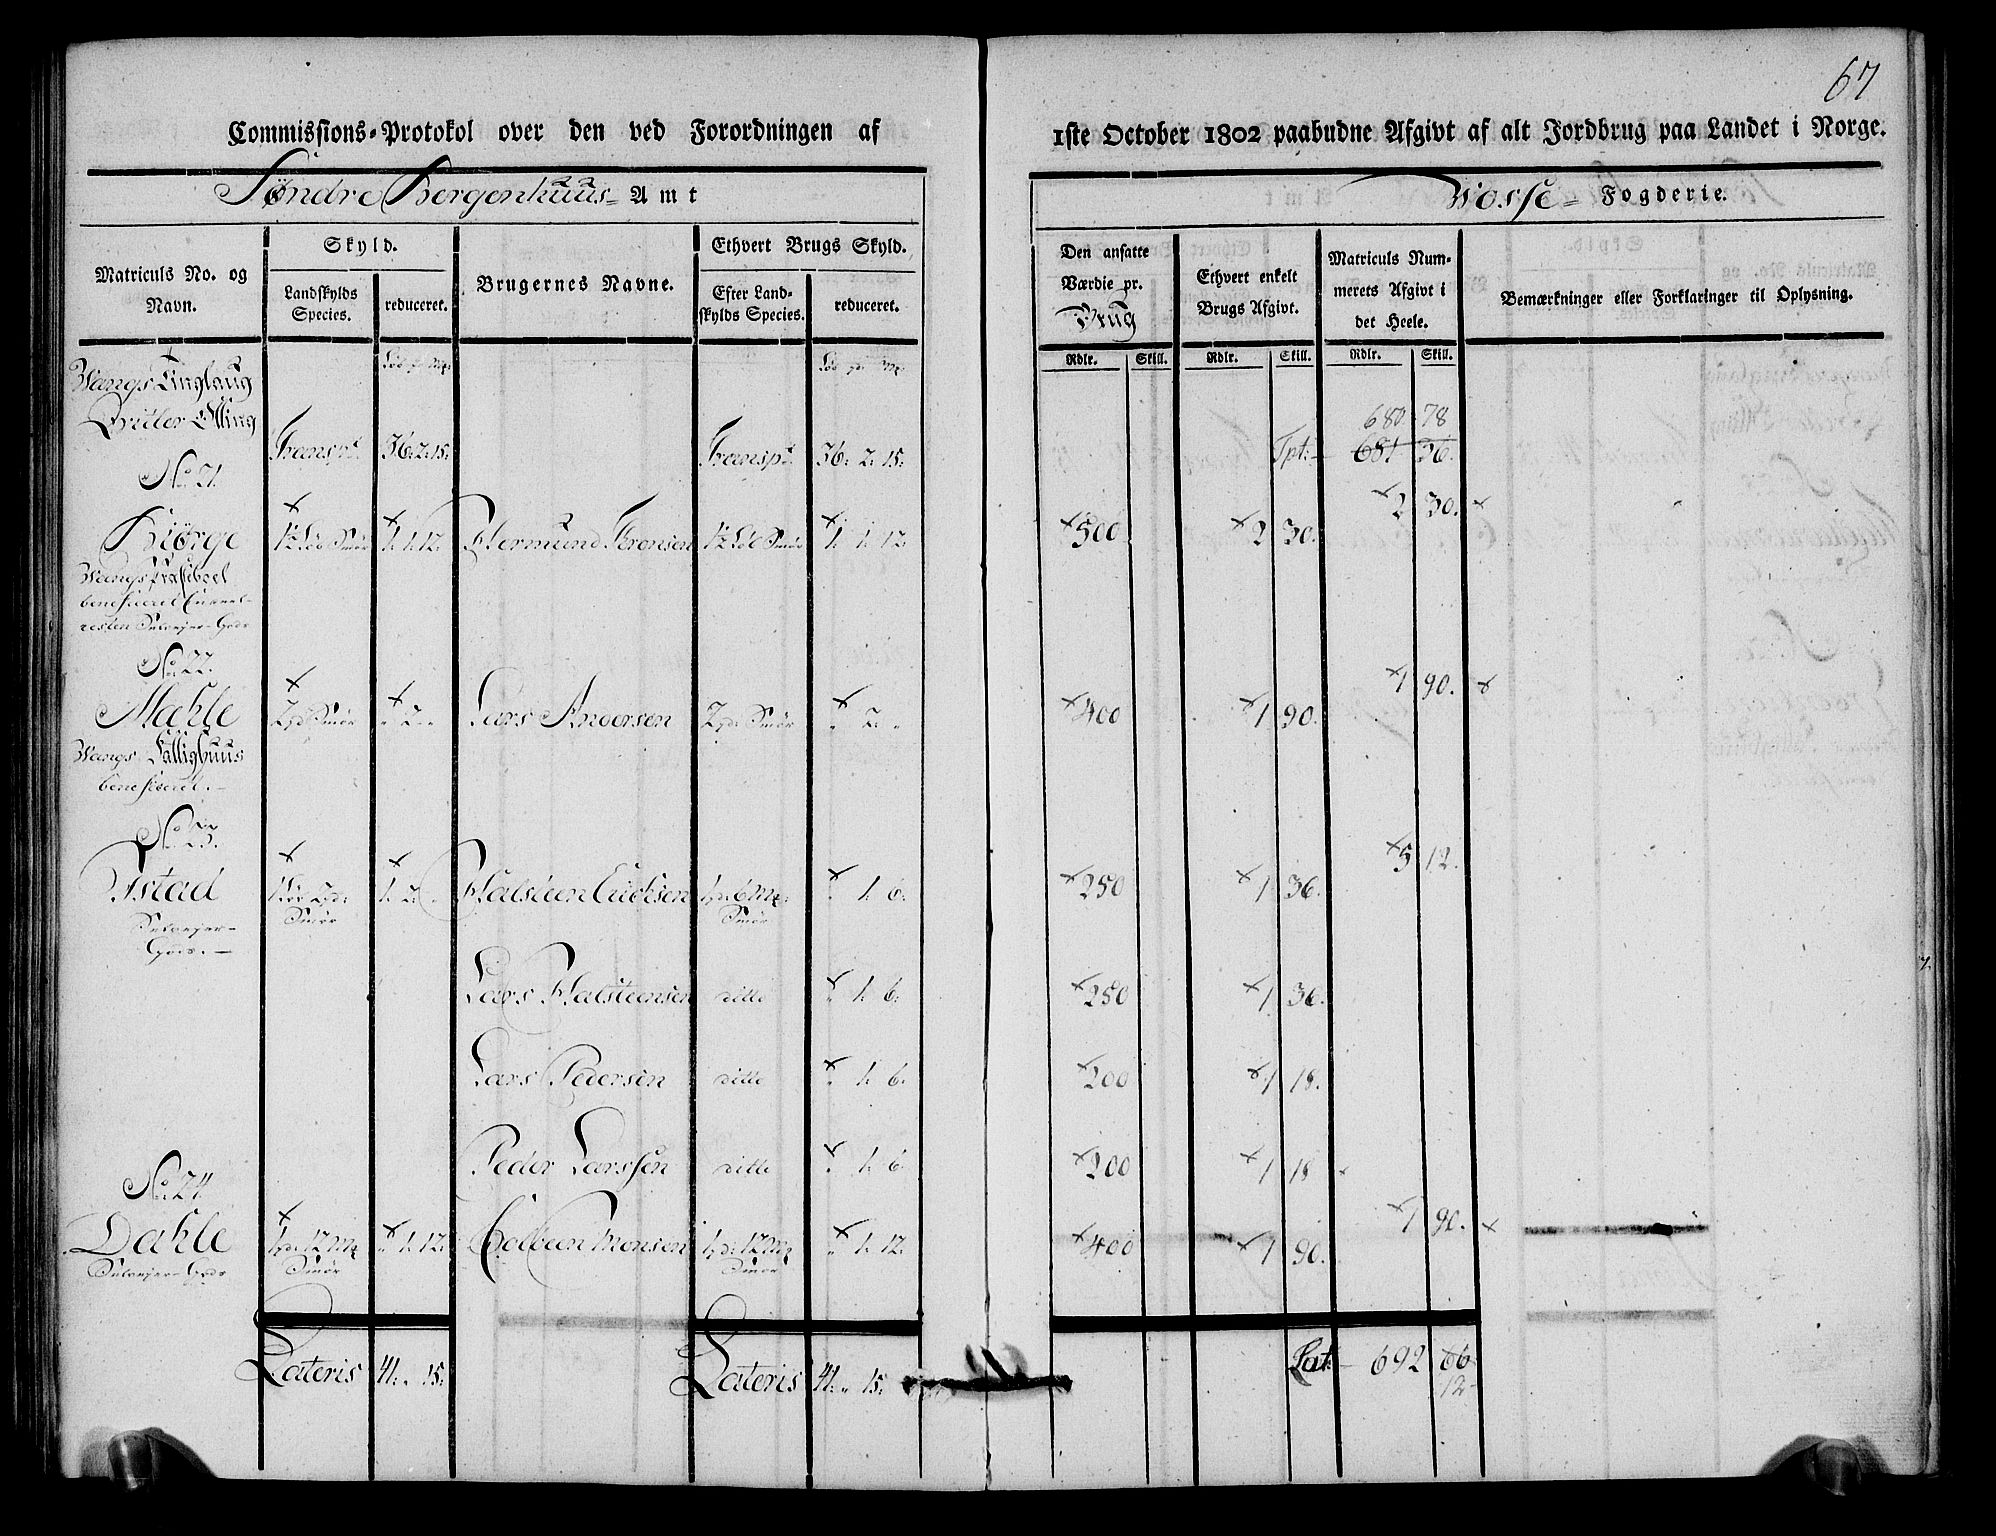 67
Commissions-Protokol over den ved Forordningen af 1ste October 1802 paabudne Afgivt af alt Jordbrug paa Landet i Norge.
Søndre Bergenhuus Amt
Wosse Fogderie.
Matriculs No. og Navn.
Skyld.
Landskylds Species.
reduceret.
Brugernes Navne.
Ethvert Brugs Skyld.
Efter Landskylds Species.
reduceret.
Den ansatte Værdie pr. Brug
Ethvert enkelt Brugs Afgivt.
Matriculs Nummerets Afgivt i det Heele.
Bemærkninger eller Forklaringer til Oplysning.
Rdlr. Skill. Rdlr. Skill. Rdlr. Skill.
Wangs Tinglaug
Transpt. 36: 2: 15: Transpt. 36: 2: 15: Tpt: 681 36. 680 78
No. 21.
2 30.
1½ Løb Smør 1. 1. 12. 1½ Løb Smør 1. 1. 12. 500 2 30.
No. 22.
1 90.
Mæhle 2 pd: Smør " 2. " Lars Andersen 2 pd: Smør " 2. " 400 1 90.
Wangs
beneficeret.
No. 23.
5 12.
Istad 1 Løb 2 pd: Smør 1. 2. " Halsteen Erichsen 1 pd: 6 mk: Smør " 1. 6. 250 1 36.
Selveyer-Gods.
Lars Halsteensen ditto " 1. 6. 250 1 36.
Lars Pedersen ditto " 1. 6. 200 1 18.
Peder Larssen ditto " 1. 6. 200 1 18
No. 24
1 90.
Dahle 1 pd: 12 mk Smør " 1. 12. Colbeen Monsen 1 pd: 12 mk Smør " 1. 12. 400 1 90.
Selveyer-Gods
Lateris 41. " 15. Lateris 41. " 15. Lat: 692 66
12